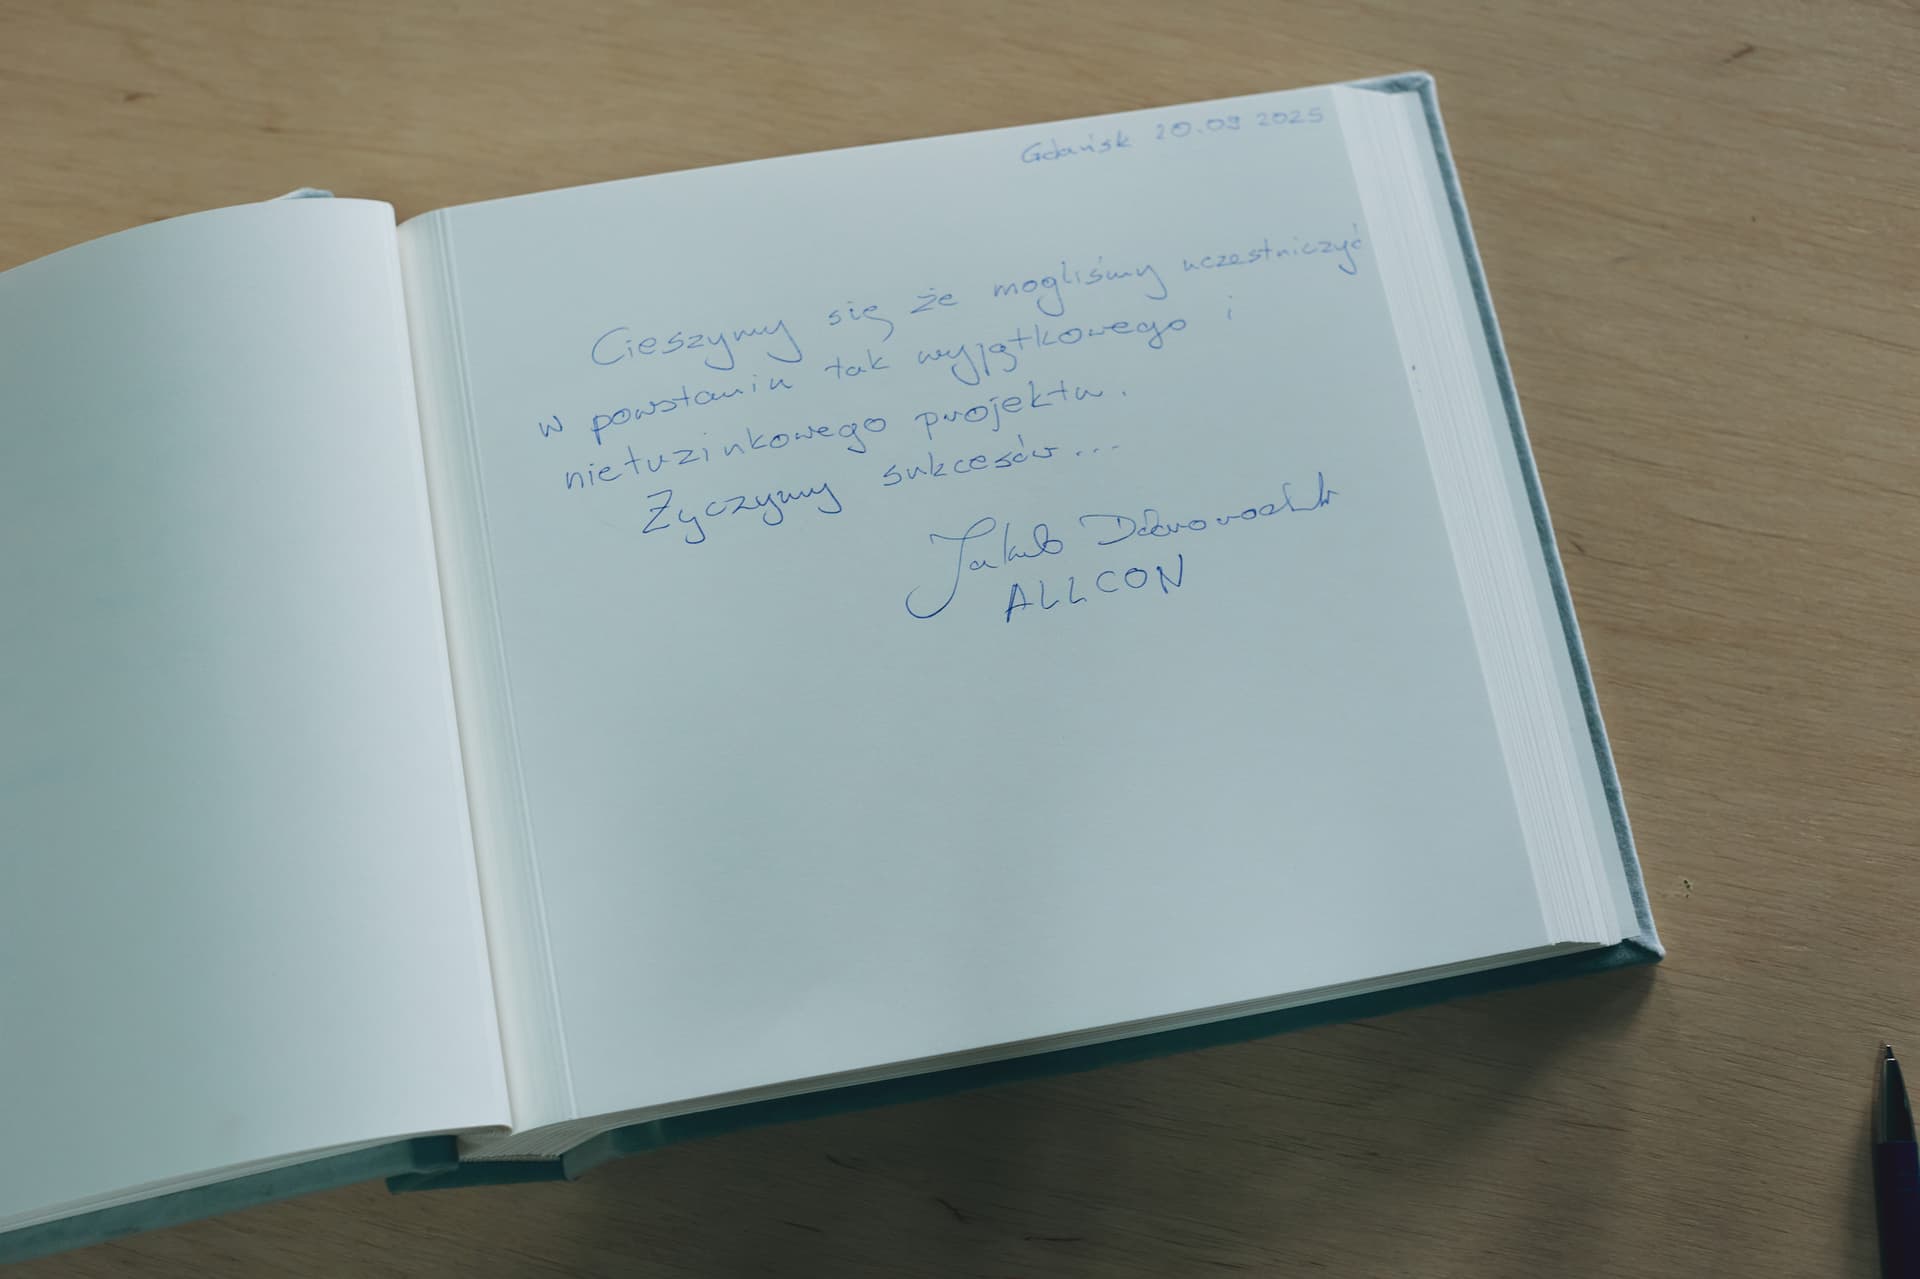 Gdańsk 20.09 2025
Cieszymy się że mogliśmy uczestniczyć
w powstaniu tak wyjątkowego i
nietuzinkowego projektu.
Życzymy sukcesów...
Jakub
ALLCON